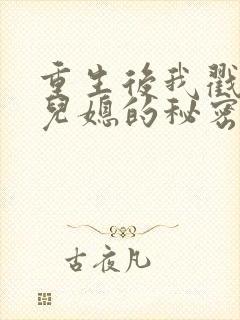 重生後我戳
兒媳的秘密
古夜凡